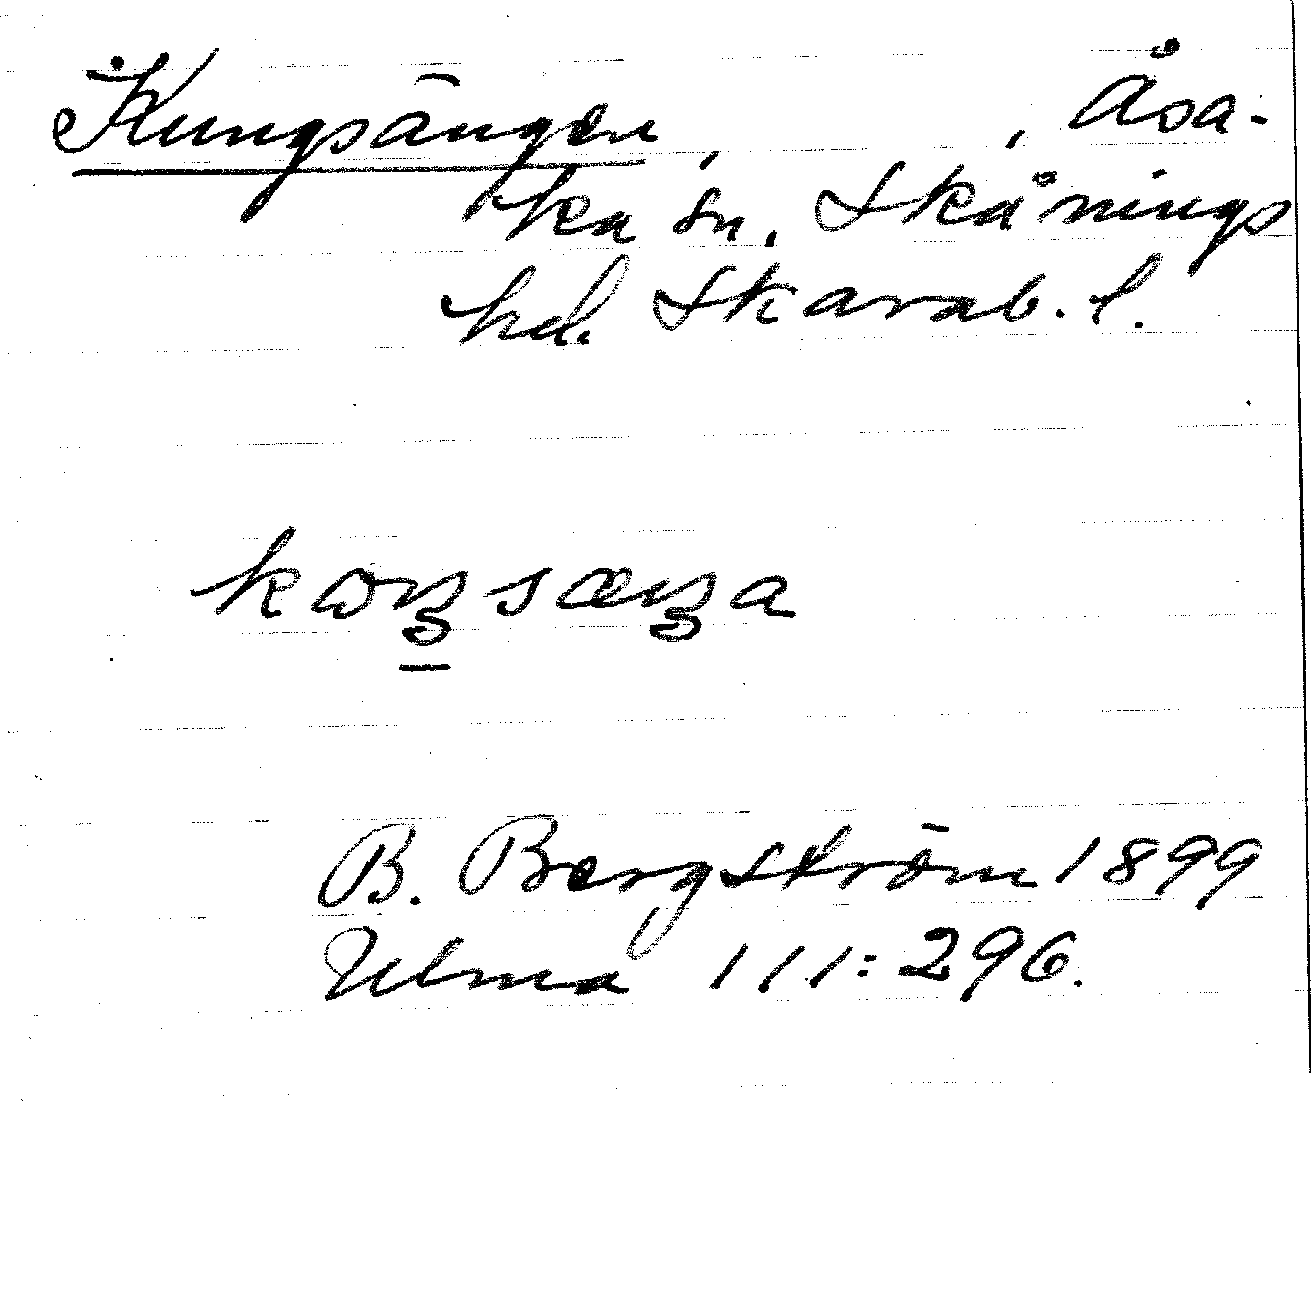 Kungsängen, , Åsa-
ka sn, Skånings
hd. Skarab. l.
B. Bergström 1899
Ulma 111:296.